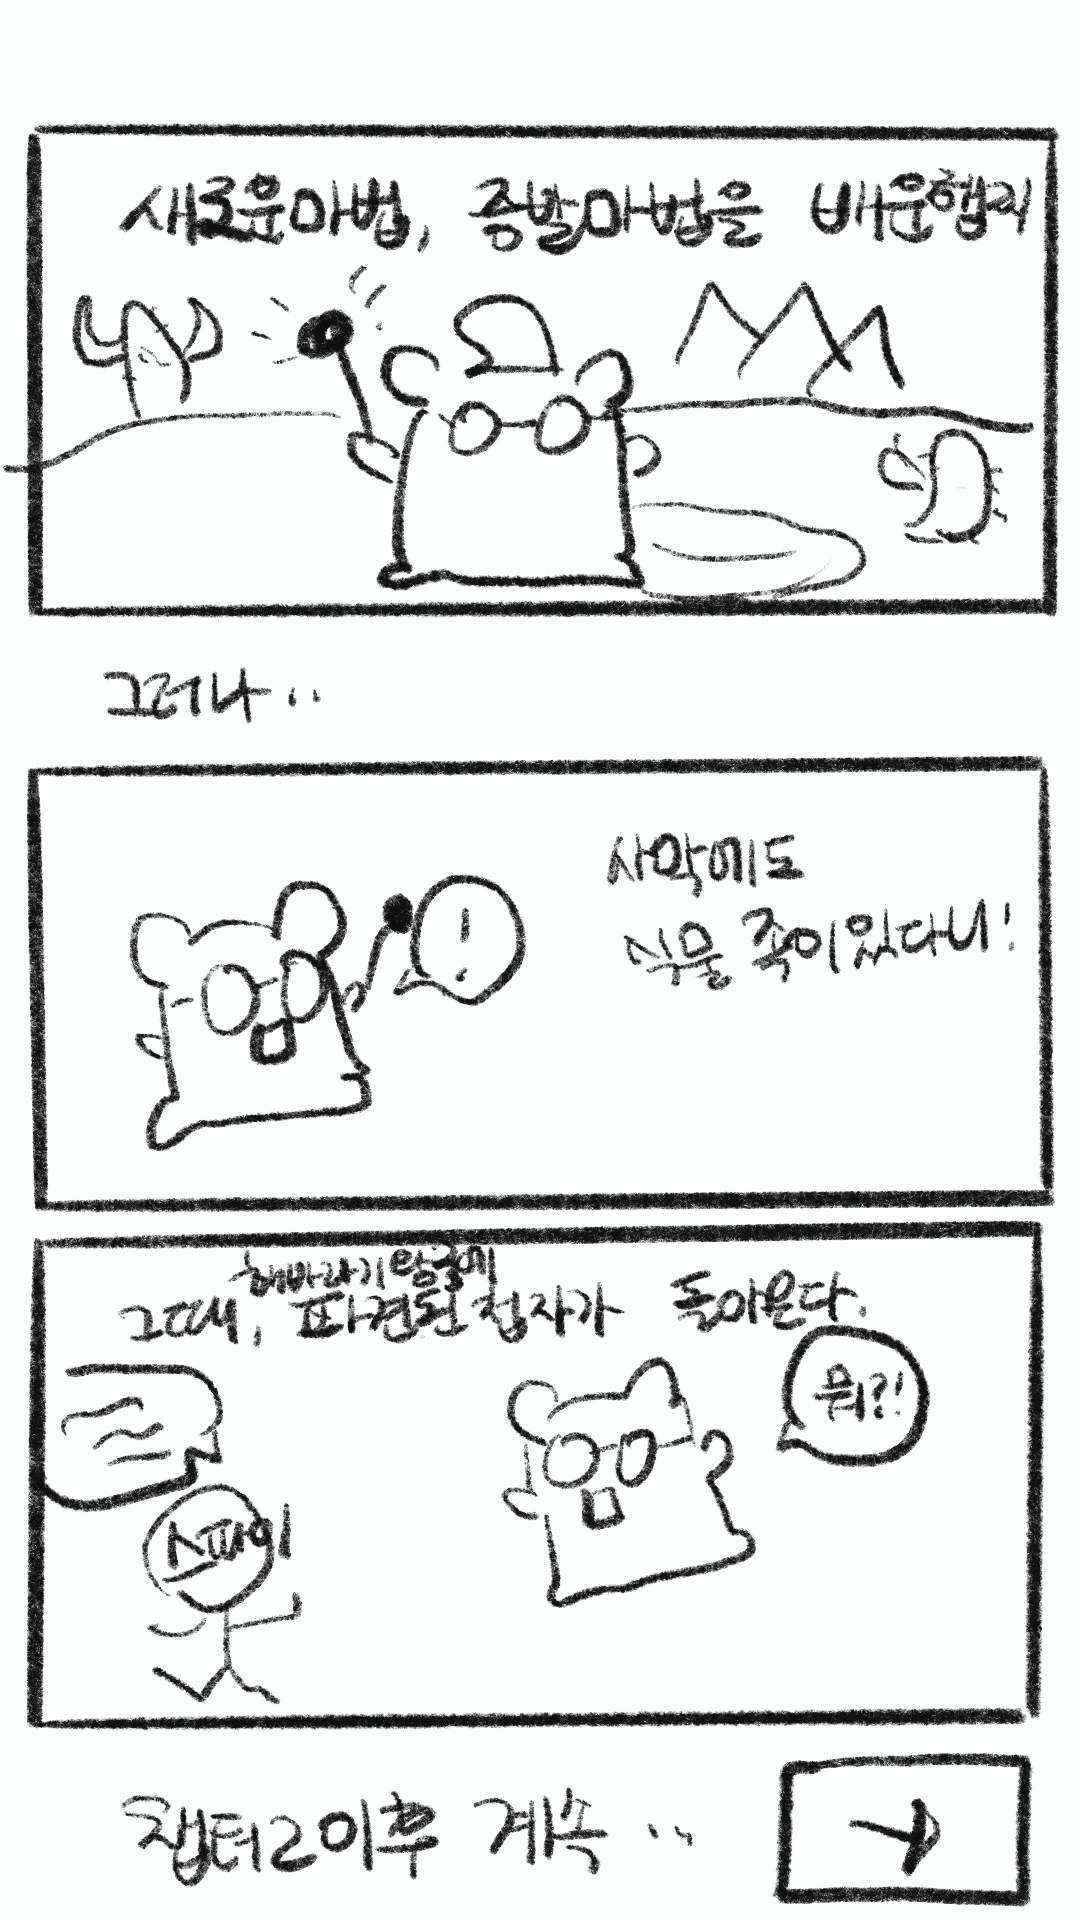 새로운마법, 증발마법을 배운햄찌
그러나..
!
사막에도
식물 족이있다니!
해바라기왕국에
그때, 파견된 첩자가 돌아온다.
뭐?!
스파이
챕터2이후 계속..